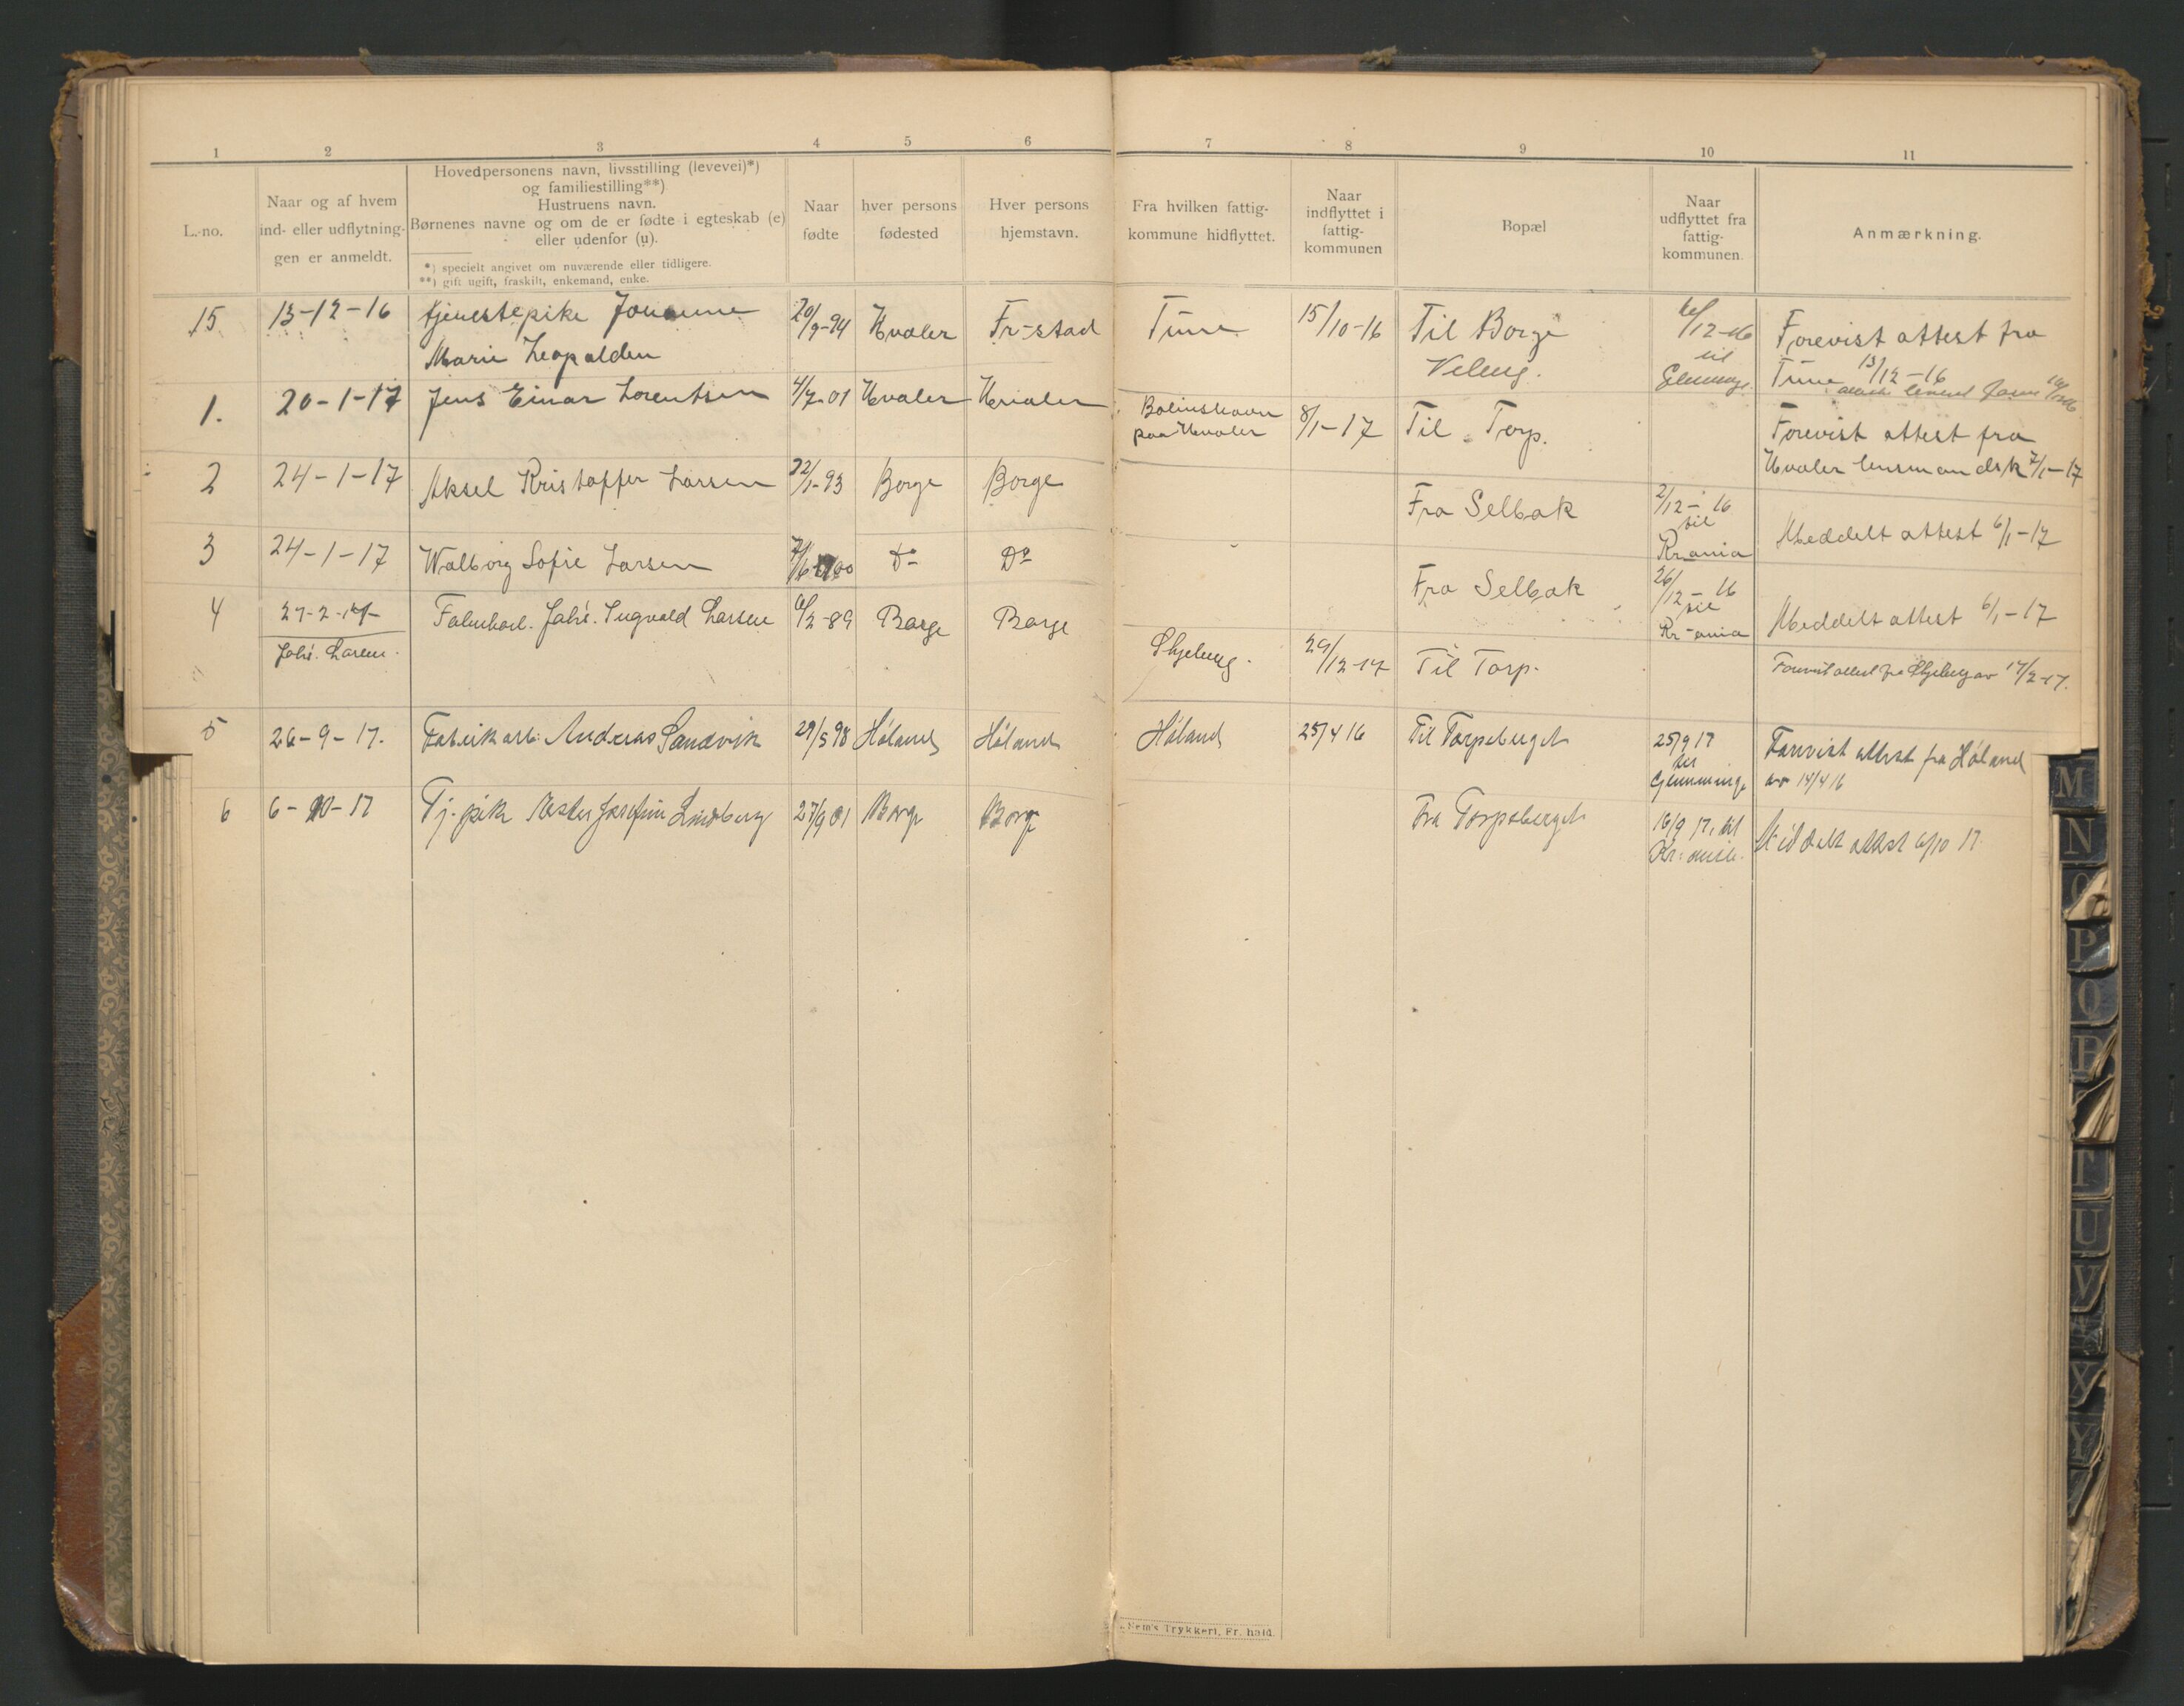 1 2 3 4 5 6 7 8 9 10 11
L.-no.
Naar og af hvem
ind- eller udflytnin-
gen er anmeldt.
Hovedpersonens navn, livsstilling (levevei)*)
og familiestilling**)
Hustruens navn.
Børnenes navne og om de er fødte i egteskab (e)
eller udenfor (u).
*) specielt angivet om nuværende eller tidligere.
**) gift ugift, fraskilt, enkemand, enke.
Naar
fødte
hver persons
fødested
Hver persons
hjemstavn.
Fra hvilken fattig-
kommune hidflyttet.
Naar
indflyttet i
fattig-
kommunen
Bopæl
Naar
udflyttet fra
fattig-
kommunen.
Anmærkning.
15 13-12-16 tjenestepike Johanne 20/9-94 Hvaler Fr-stad Tune 15/10-16 Til Borge /12-16 Forevist attest fra
Marie Leopalden
til
Glemminge
Tune 13/12-16
1. 20-1-17 Jens Einar Lorentsen 4/7-01 Hvaler Hvaler
paa Hvaler 8/1-17 Til Torp. Forevist attest fra
Hvaler lensmandsk 7/1-17
2 24-1-17 Aksel Kristoffer Larsen 22/1-93 Borge Borge Fra Selbak 2/12-16
til
Kr.ania
Meddelt attest 6/1-17
3 24-1-17 Walborg Sofie Larsen Do Do Fra Selbak 26/12-16
til
Kr-ania
Meddelt attest 6/1-17
4 27-2-17 Johs. Ingvald Larsen 6/2-89 Borge Borge
Johs. Larsen.
Skjeberg. 29/12-17 Til Torp. Forevist attest fra Skjeberg av 17/2-17.
5 26-9-17. Fabrikarb: Andreas Sandvik 29/5 98 Høland Høland Høland 25/4 16 Til Torpeberget 25/9 17
til
Glemminge
Forevist attest fra Høland
av 14/4 16
6 6-10-17 Tj. pike Ester Josefine Lindberg 27/9 01 Borge Borge Fra Torpeberget 16/9 17, til
Kr:ania.
Meddelt attest 6/10 17.
Sem's Trykkeri, Fr.hald.
M
N
O
P
Q
R
T
U
V
X
Y